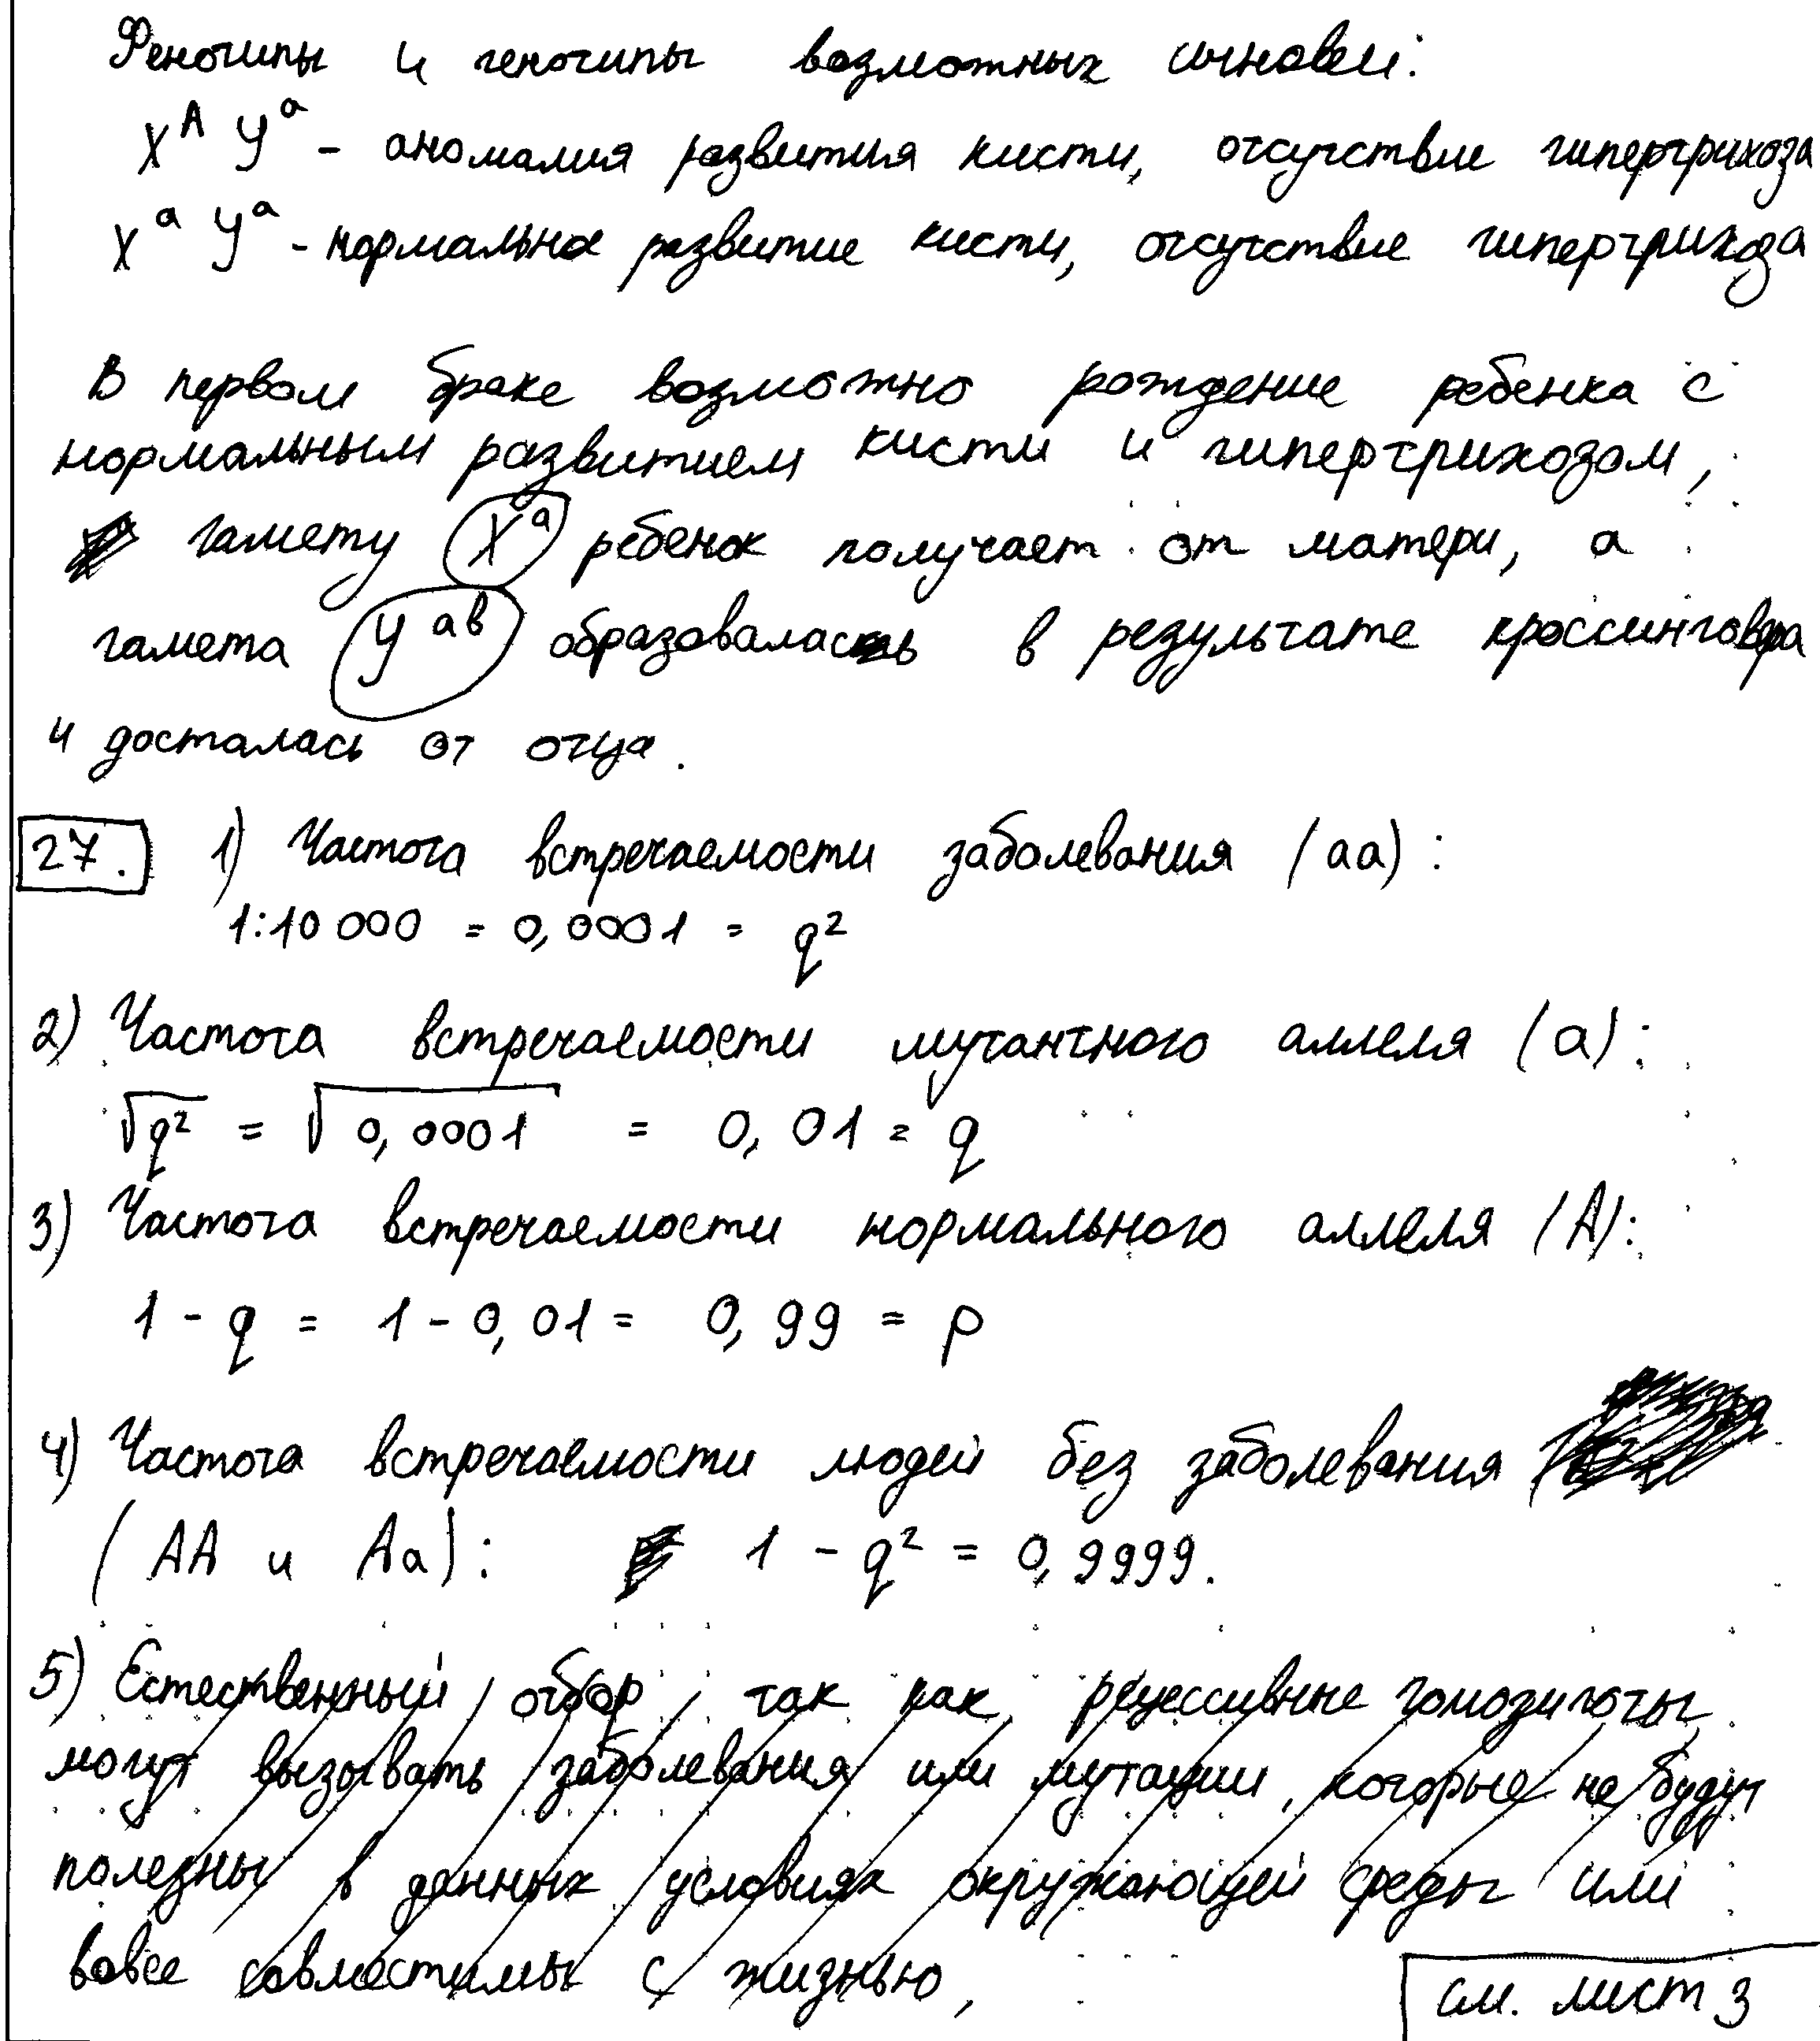 Фенотипы и генотипы возможных сыновей:
X^A Y^a - аномалия развития кисти, отсутствие гипертрихоза
X^a Y^a - нормальное развитие кисти, отсутствие гипертрихоза
В первом браке возможно рождение ребенка с
нормальным развитием кисти и гипертрихозом,
гамету X^a ребенок получает от матери, а
гамета Y^ab образовалась в результате кроссинговера
и досталась от отца.
27. 1) Частота встречаемости заболевания (aa):
1:10 000 = 0,0001 = q²
2) Частота встречаемости мутантного аллеля (a):
√q² = √0,0001 = 0,01 = q
3) Частота встречаемости нормального аллеля (A):
1 - q = 1 - 0,01 = 0,99 = p
4) Частота встречаемости людей без заболевания
(AA и Aa): 1 - q² = 0,9999.
5) Естественный отбор, так как рецессивные гомозиготы
могут вызывать заболевания или мутации, которые не будут
полезны в данных условиях окружающей среды или
вовсе совместимы с жизнью,
см. лист 3